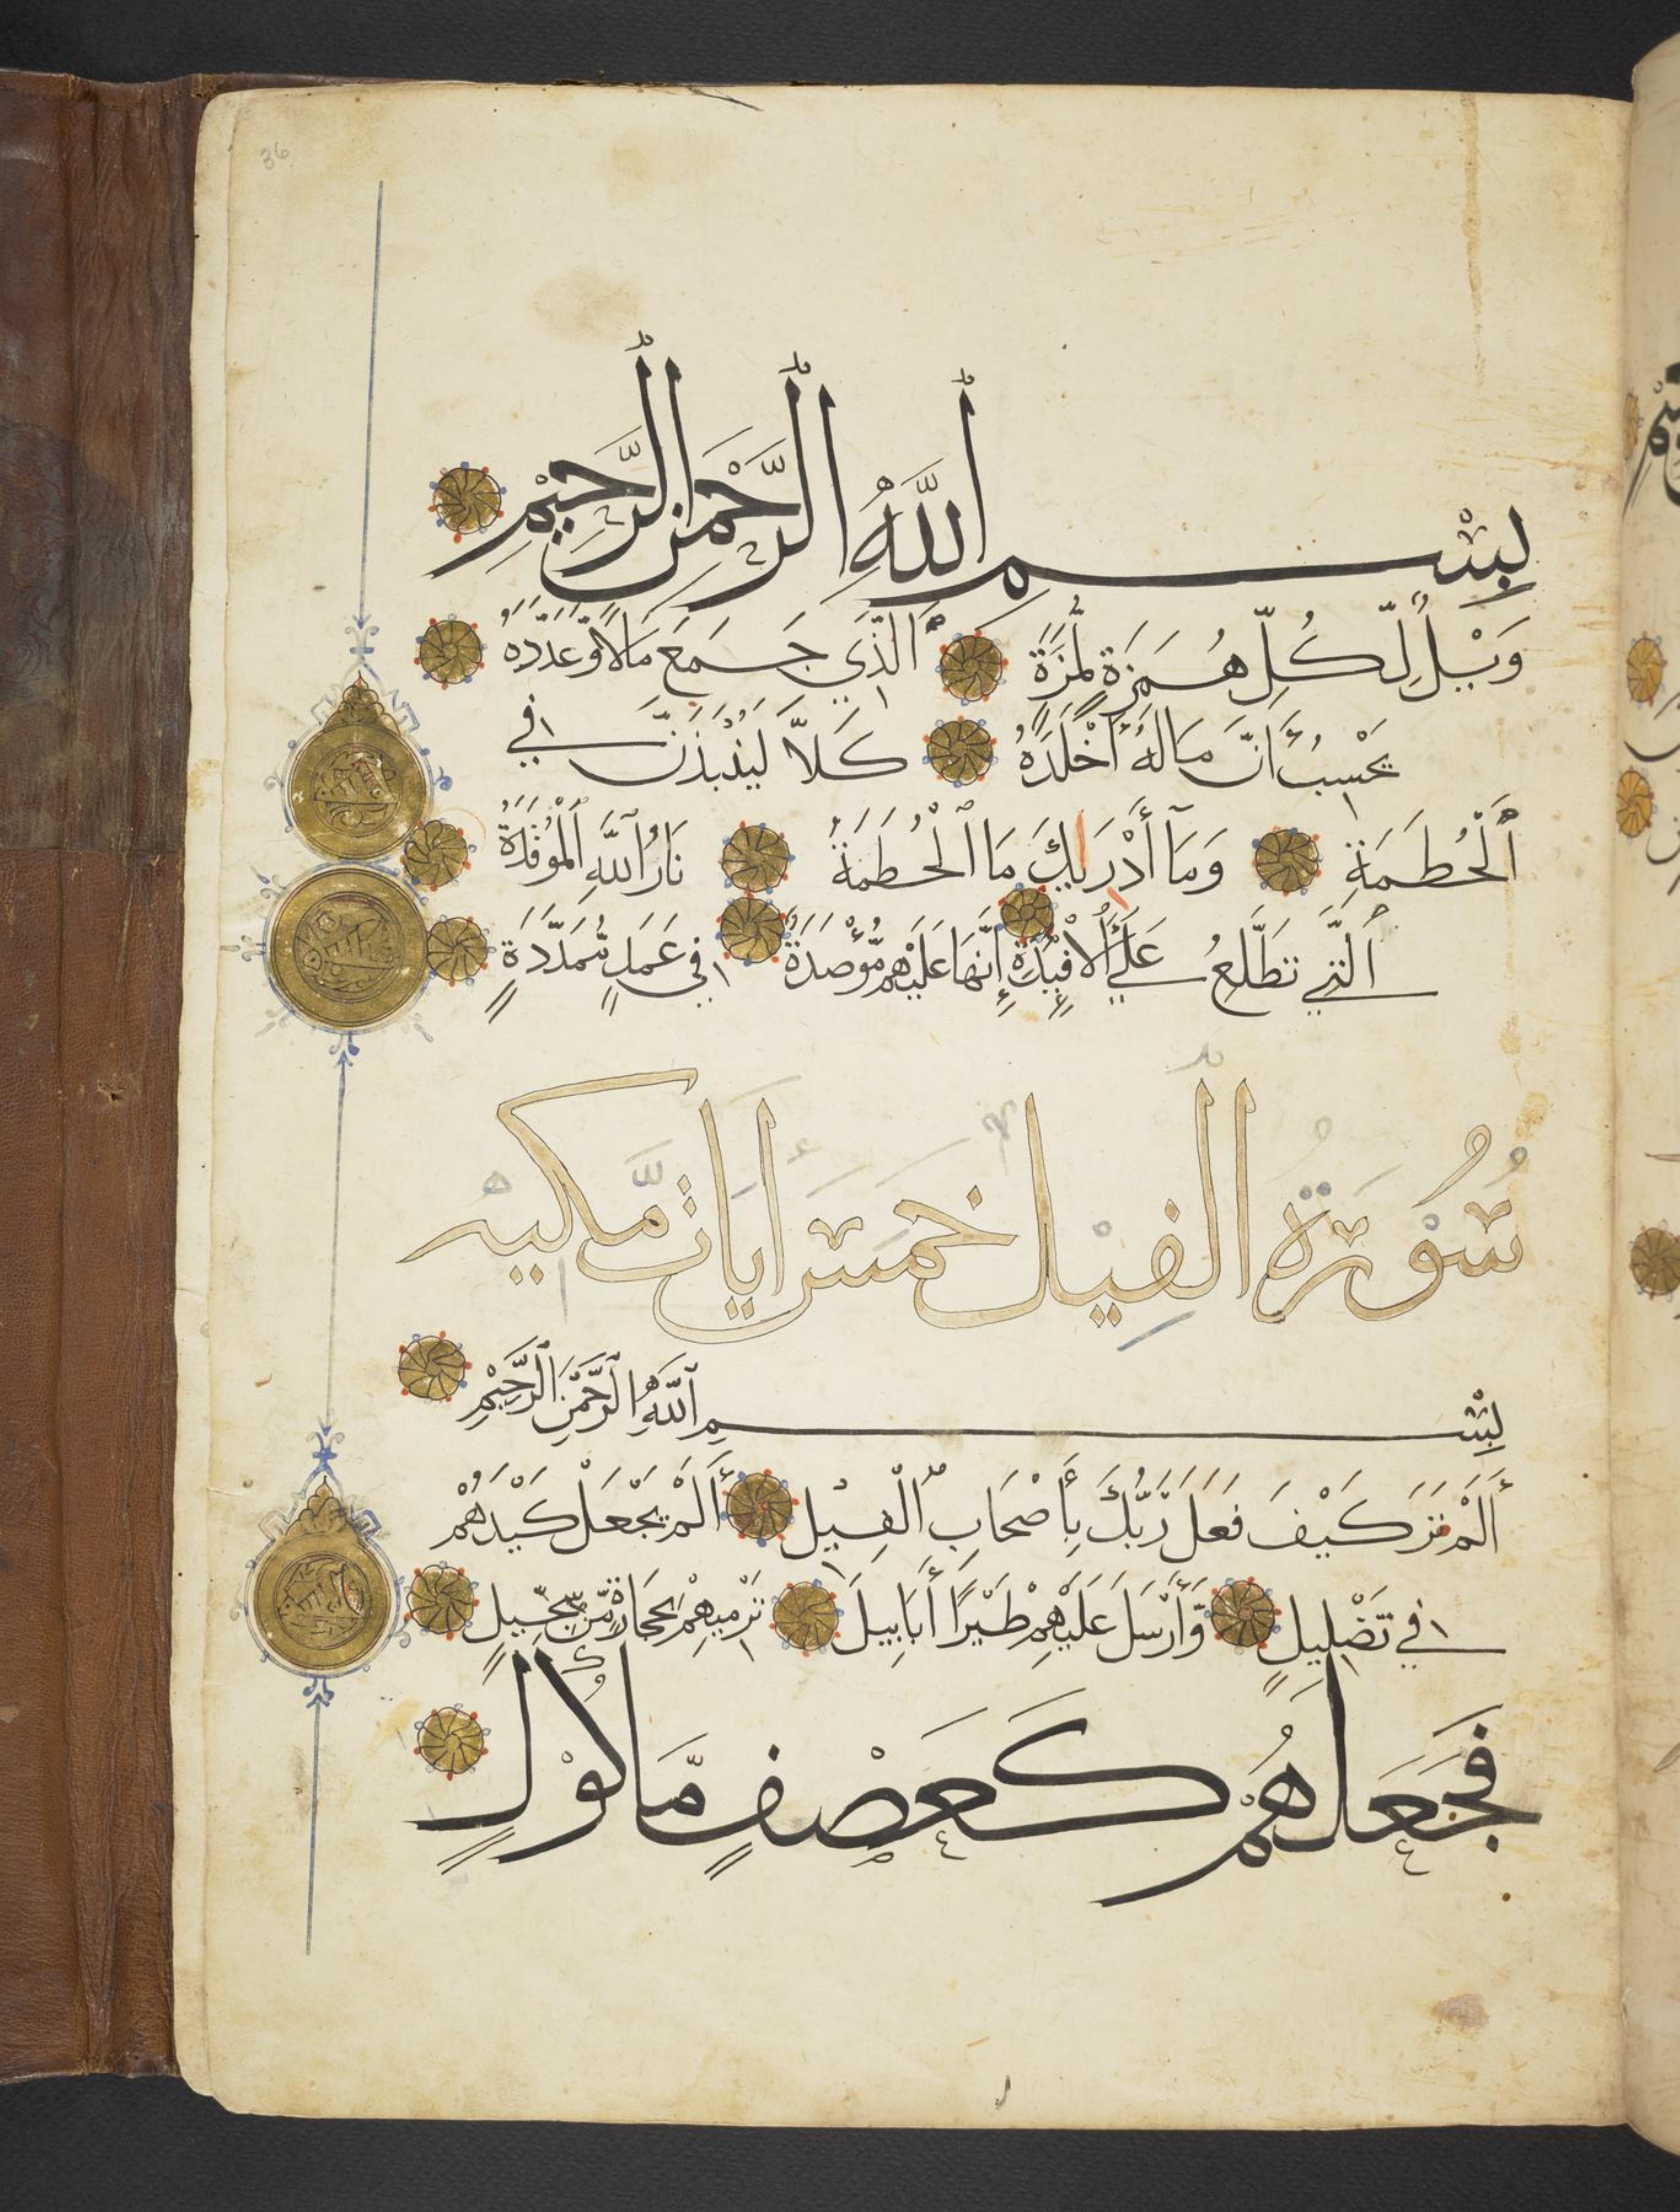 36
بِسْمِ ٱللَّهِ ٱلرَّحْمَنِ ٱلرَّحِيمِ
وَيْلٌ لِّكُلِّ هُمَزَةٍ لُّمَزَةٍ ٱلَّذِي جَمَعَ مَالًا وَّعَدَّدَهُ
يَحْسَبُ أَنَّ مَالَهُ أَخْلَدَهُ كَلَّا لَيُنْبَذَنَّ فِي
ٱلْحُطَمَةِ وَمَآ أَدْرَىٰكَ مَا ٱلْحُطَمَةُ نَارُ ٱللَّهِ ٱلْمُوقَدَةُ
ٱلَّتِي تَطَّلِعُ عَلَى ٱلْأَفْئِدَةِ إِنَّهَا عَلَيْهِم مُّؤْصَدَةٌ فِي عَمَدٍ مُّمَدَّدَةٍ
سُورَةُ الْفِيلِ خَمْسَ أَيَاتٍ مَّكِّيَّه
بِسْمِ ٱللَّهِ ٱلرَّحْمَنِ ٱلرَّحِيمِ
أَلَمْ تَرَ كَيْفَ فَعَلَ رَبُّكَ بِأَصْحَابِ ٱلْفِيلِ أَلَمْ يَجْعَلْ كَيْدَهُمْ
فِي تَضْلِيلٍ وَّأَرْسَلَ عَلَيْهِمْ طَيْرًا أَبَابِيلَ تَرْمِيهِمْ بِحِجَارَةٍ مِّن سِجِّيلٍ
فَجَعَلَهُمْ كَعَصْفٍ مَّأْكُولٍ